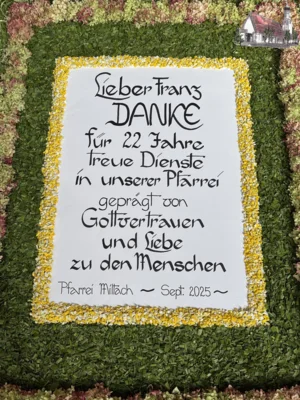 Lieber Franz
DANKE
für 22 Jahre
treue Dienste
in unserer Pfarrei
geprägt von
Gottvertrauen
und Liebe
zu den Menschen
Pfarrei Miltach ~ Sept. 2025 ~